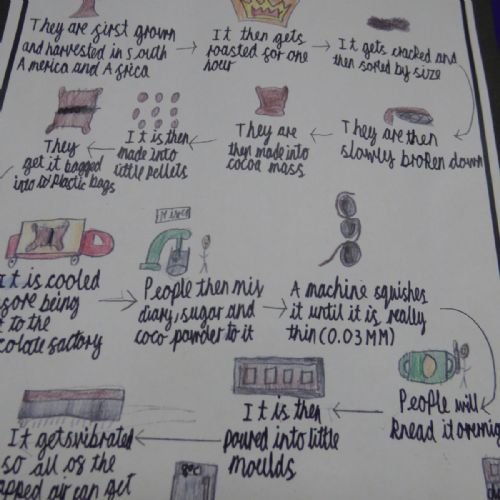 They are first grown
and harvested in South
America and Africa
It then gets
roasted for one
hour
It gets cracked and
then sorted by size
They are then
slowly broken down
They are
then made into
cocoa mass
It is then
made into
little pellets
They
get it bagged
into plastic bags
It is cooled
before being
to the
factory
People then mix
diary, sugar and
coco powder to it
A machine squishes
it until it is really
thin (0.03MM)
People will
knead it
It is then
poured into little
moulds
It gets vibrated
so all of the
air can get